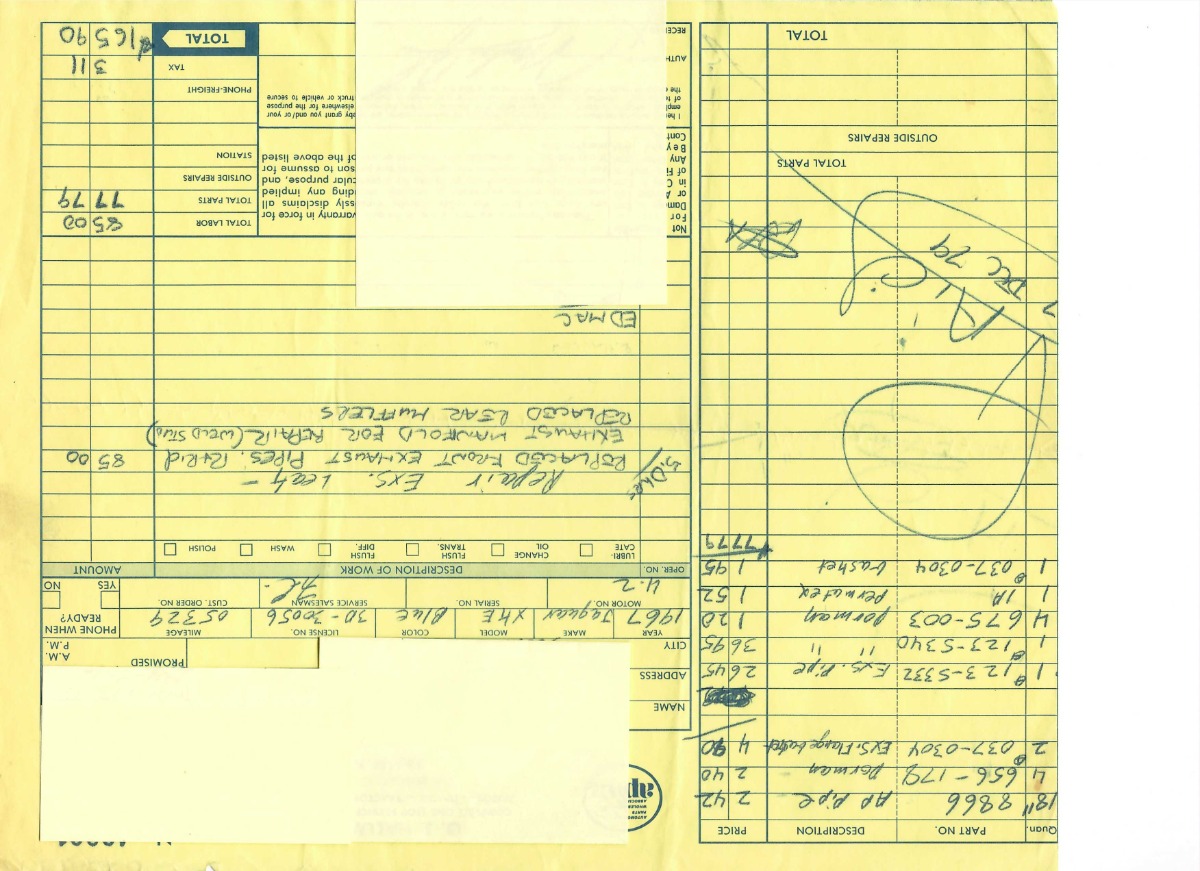 Quan. PART NO. DESCRIPTION PRICE
18" 8866 AP Pipe 2 42
4 656-178 Dorman 2 40
2 @ 037-0304 EXS. Flange Gasket 4 90
1 @ 123-5332 Exs. Pipe 26 45
1 @ 123-5340 " " 36 95
4 675-003 Dorman 1 20
1 1A Permatex 1 52
1 @ 037-0304 Gasket 1 95
77 79
A/C
7 DEC 79
TOTAL PARTS
OUTSIDE REPAIRS
TOTAL
AUTOMO
PARTS
WHOLES
ASSOCI
NAME
ADDRESS
CITY
PROMISED A.M. P.M.
YEAR MAKE MODEL COLOR LICENSE NO. MILEAGE
1967 Jaguar XKE Blue 3D-30056 05329
PHONE WHEN READY?
YES NO
MOTOR NO. SERIAL NO. SERVICE SALESMAN CUST. ORDER NO.
4-2
OPER. NO. DESCRIPTION OF WORK AMOUNT
LUBRI-CATE CHANGE OIL FLUSH TRANS. FLUSH DIFF. WASH POLISH
Repair Exs. Leak -
5.0hrs REPLACED FRONT EXHAUST PIPES. R+Rid 85 00
EXHAUST MANIFOLD FOR REPAIR (WELD STUD)
REPLACED REAR MUFFLERS
ED MAC
TOTAL LABOR 85 00
TOTAL PARTS 77 79
OUTSIDE REPAIRS
STATION
PHONE-FREIGHT
TAX 3 11
TOTAL $165 90
Not
For
Dam
or A
in C
of Fi
Any
Bey
Cont
warranty in force for
ssly disclaims all
ding any implied
cular purpose, and
son to assume for
of the above listed
I her
empl
of t
the
by grant you and/or your
elsewhere for the purpose
truck or vehicle to secure
AUTH
RECE